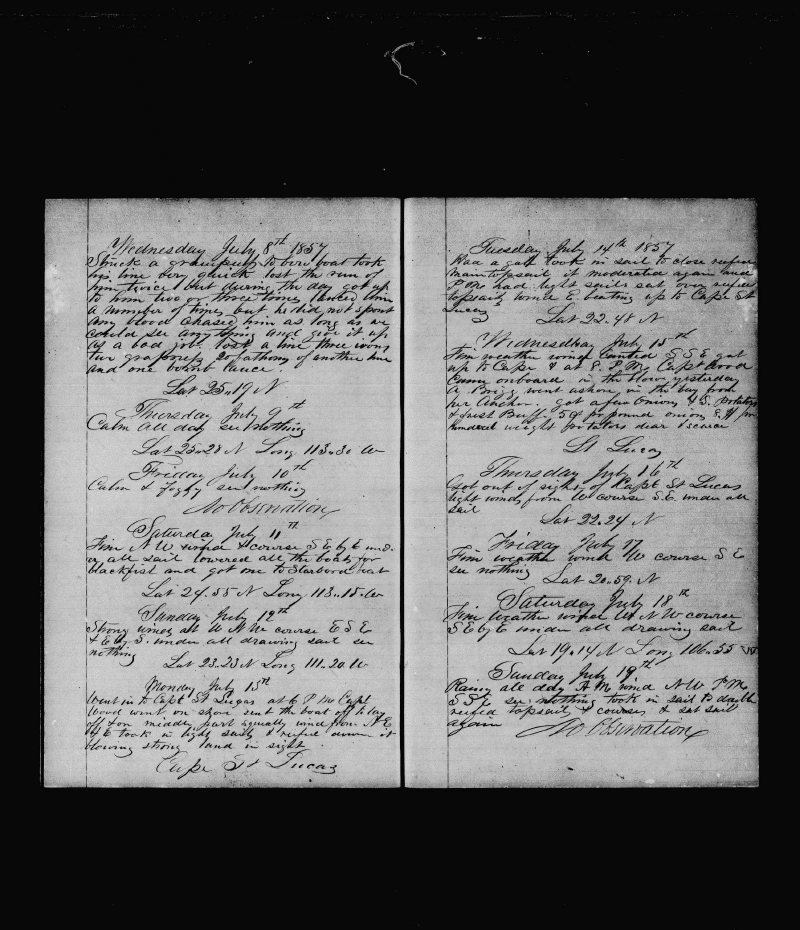 Wednesday July 8th 1857
Struck a grampus bow boat took
his line very quick lost the run of
him twice but during the day got up
to him two or three times lanced him
a number of times but he did not spout
any blood chased him as long as we
could see any thing and give it up
as a bad job lost a line three irons
two grapnels 20 fathoms of another line
and one bomb lance.
Lat 25.19 N
Thursday July 9th
Calm all day see nothing
Lat 25.28 N Long 113.30 W
Friday July 10th
Calm & foggy see nothing
No Observation
Saturday July 11th
Fine N W wind & course S E by E und-
er all sail lowered all the boats for
blackfist and got one to Starbord boat
Lat 24.55 N Long 113.15 W
Sunday July 12th
Strong winds at W N W course E S E
& E by S. under all drawing sail see
nothing
Lat 23.23 N Long 111.20 W
Monday July 13th
Went in to Capt St Lucas at 6 P M Capt
Wood went on shore sent the boat off to lay
off & on middle part squally wind from N E
by E took in light sails & reefed down it
blowing strong land in sight
Cape St Lucas
Tuesday July 14th 1857
Had a gale took in sail to close reefed
maintopsail it moderated again and
P M had light sails sat over reefed
topsails wind E beating up to Cape St
Lucas
Lat 22.48 N
Wednesday July 15th
Fine weather wind S S E got
up to Cape & at 8. P M Capt Wood
came onboard in the blow yesterday
A Brig went ashore in the bay from
her Anchor. got a few Onions & S. Potatoes
& fresh Beef. 5¢ pr pound onions 8.$ pr
hundred weight potatoes dear & scarce
St Lucas
Thursday July 16th
Got out of sight of Capt St Lucas
light winds from W course S.E. under all
sail
Lat 22.24 N
Friday July 17
Fine weather wind W course S E
see nothing
Lat 20.59. N
Saturday July 18th
Fine weather wind W N W course
S E by E under all drawing sail
Lat 19.14 N Long 106.55 W
Sunday July 19th
Rainy all day A M wind N W P M
S S E see nothing took in sail to double
reefed topsails & courses & sat sail
again
No Observation